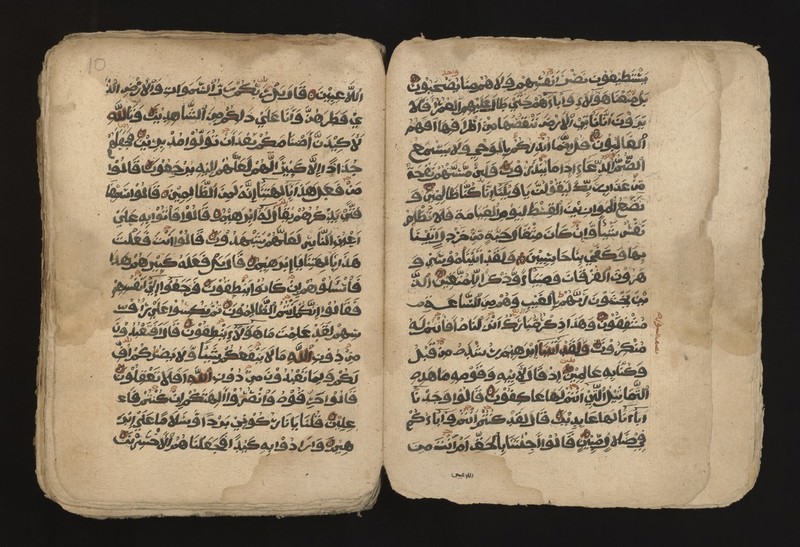 يستطيعون نصر انفسهم ولا هم منا يصحبون
بل متعنا هؤلاء وءاباءهم حتى طال عليهم العمر افلا
يرون انا ناتي الارض ننقصها من اطرافها افهم
الغالبون قل انما انذركم بالوحي ولا يسمع
الصم الدعاء اذا ما ينذرون ولئن مستهم نفحة
من عذاب ربك ليقولن ياويلنا انا كنا ظالمين و
نضع الموازين القسط ليوم القيامة فلا تظلم
نفس شيئا وان كان مثقال حبة من خردل اتينا
بها وكفى بنا حاسبين ولقد ءاتينا موسى و
هرون الفرقان وضياء وذكرا للمتقين الذ
ين يخشون ربهم بالغيب وهم من الساعة
مشفقون وهذا ذكر مبارك انزلناه افانتم له
منكرون ولقد اتينا ابرهيم رشده من قبل
وكنا به عالمين اذ قال لابيه وقومه ما هذه
التماثيل التي انتم لها عاكفون قالوا وجدنا
اباءنا لها عابدين قال لقد كنتم انتم وءاباؤكم
في ضلال مبين قالوا اجئتنا بالحق ام انت من
اللاعبين
10
اللاعبين قال بل ربكم رب السموات والارض الذ
ي فطرهن وانا على ذلكم من الشاهدين وتالله
لاكيدن اصنامكم بعد ان تولوا مدبرين فجعلهم
جذاذا الا كبيرا لهم لعلهم اليه يرجعون قالوا
من فعل هذا بالهتنا انه لمن الظالمين قالوا سمعنا
فتى يذكرهم يقال له ابرهيم قالوا فاتوا به على
اعين الناس لعلهم يشهدون قالوا ءانت فعلت
هذا بالهتنا يا ابرهيم قال بل فعله كبيرهم هذا
فاسئلوهم ان كانوا ينطقون فرجعوا الى انفسهم
فقالوا انكم انتم الظالمون ثم نكسوا على رءو
سهم لقد علمت ما هؤلاء ينطقون قال افتعبدون
من دون الله ما لا ينفعكم شيئا ولا يضركم اف
لكم ولما تعبدون من دون الله افلا تعقلون
قالوا حرقوه وانصروا الهتكم ان كنتم فا
علين قلنا يا نار كوني بردا وسلاما على ابر
هيم وارادوا به كيدا فجعلناهم الاخسرين